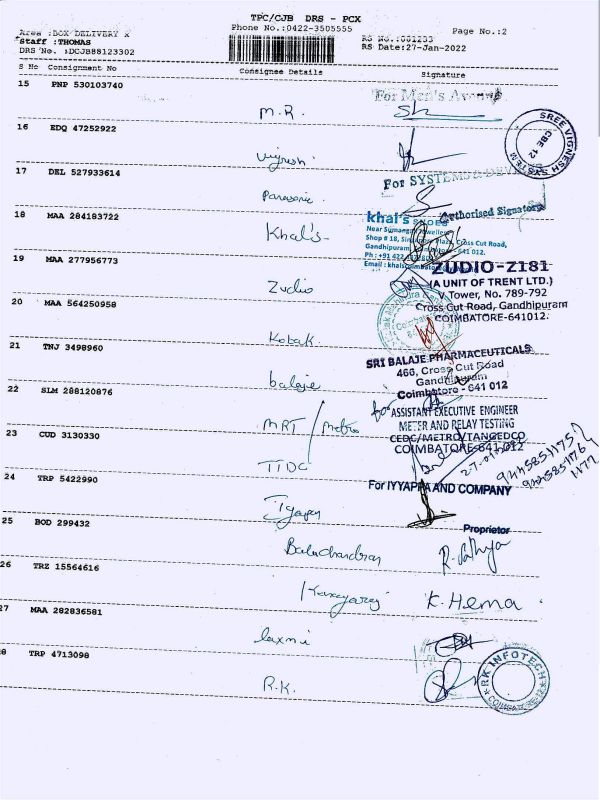 TPC/CJB DRS - PCX
Phone No.:0422-3505555
Page No.:2
Area :BOX DELIVERY X
Staff :THOMAS
DRS No. :DCJB88123302
RS No.:081233
RS Date:27-Jan-2022
S No Consignment No Consignee Details Signature
15 PNP 530103740 M.R.
For Men's Avenue
16 EDQ 47252922 Vignesh
SREE VIGNESH SYSTEM
CBE 12
17 DEL 527933614 Panasonic
For SYSTEMS &
Authorised Signatory
18 MAA 284183722 Khal's
khal's SHOES
Near Sumangali Jewellers
Shop # 18, Plaza, Cross Cut Road,
Gandhipuram, 641 012.
Ph : +91 422
Email :
19 MAA 277956773 Zudio
ZUDIO-Z181
(A UNIT OF TRENT LTD.)
Tower, No. 789-792
Cross Cut Road, Gandhipuram
COIMBATORE-641012.
20 MAA 564250958 Kotak
21 TNJ 3498960 balaje
SRI BALAJE PHARMACEUTICALS
466, Cross Cut Road
Gandhipuram
Coimbatore - 641 012
22 SLM 288120876 MRT / Metro
for
ASSISTANT EXECUTIVE ENGINEER
METER AND RELAY TESTING
CEDC/METRO/TANGEDCO
COIMBATORE-641 012
23 CUD 3130330 TTDC
24 TRP 5422990 Iyappa
For IYYAPPA AND COMPANY
Proprietor
25 BOD 299432 Balachandran R. Sathya
26 TRZ 15564616 K. Hema
27 MAA 282836581 laxmi
28 TRP 4713098 R.K.
RK INFOTECH
COIMBATORE